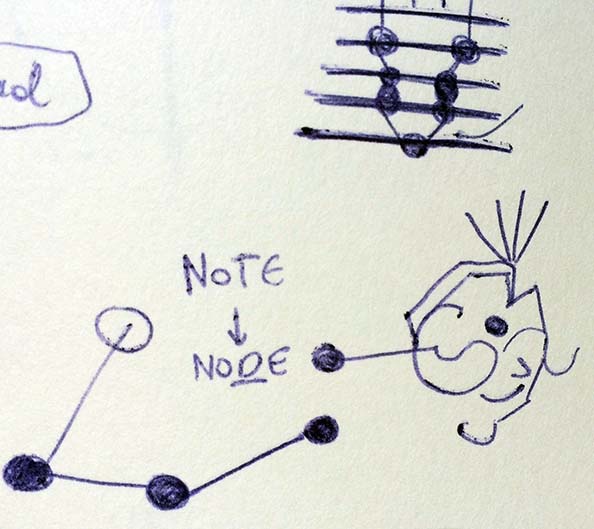 NoTE
NODE